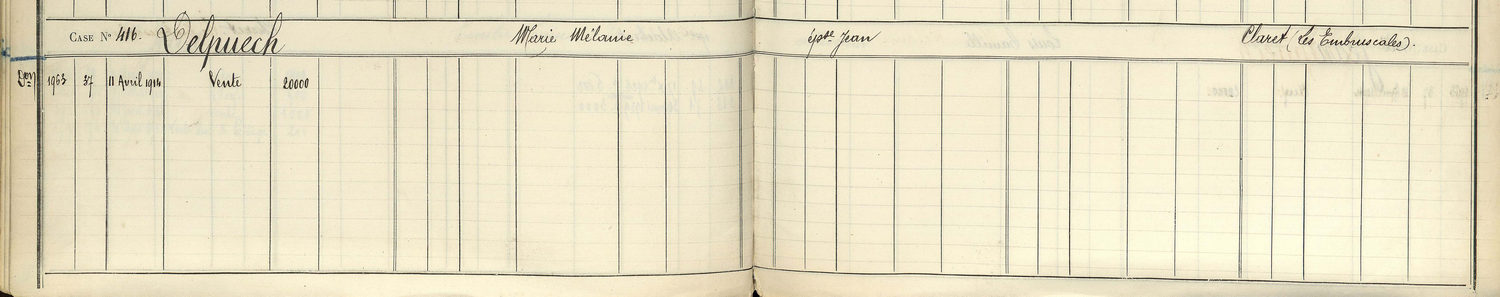 CASE Nº 416. Delpuech Marie Mélanie épse Jean Claret (Les Embruscales).
Don 1963 37 11 Avril 1914 Vente 20000